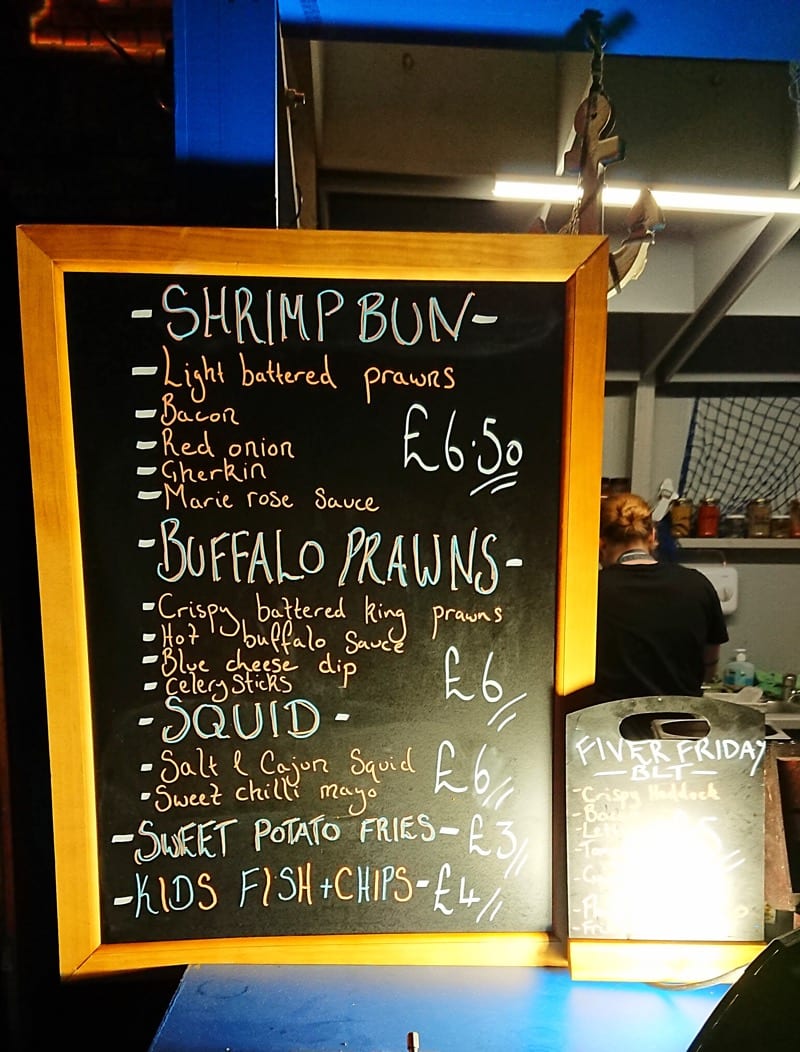 -SHRIMP BUN-
-Light battered prawns
-Bacon
-Red onion
-Gherkin
-Marie rose Sauce
£6.50
-BUFFALO PRAWNS-
-Crispy battered king prawns
-Hot buffalo Sauce
-Blue cheese dip
-Celery Sticks
£6
-SQUID-
-Salt & Cajun Squid
-Sweet chilli mayo
£6
-SWEET POTATO FRIES-£3
-KIDS FISH+CHIPS-£4
FIVER FRIDAY
-BLT-
-Crispy Haddock